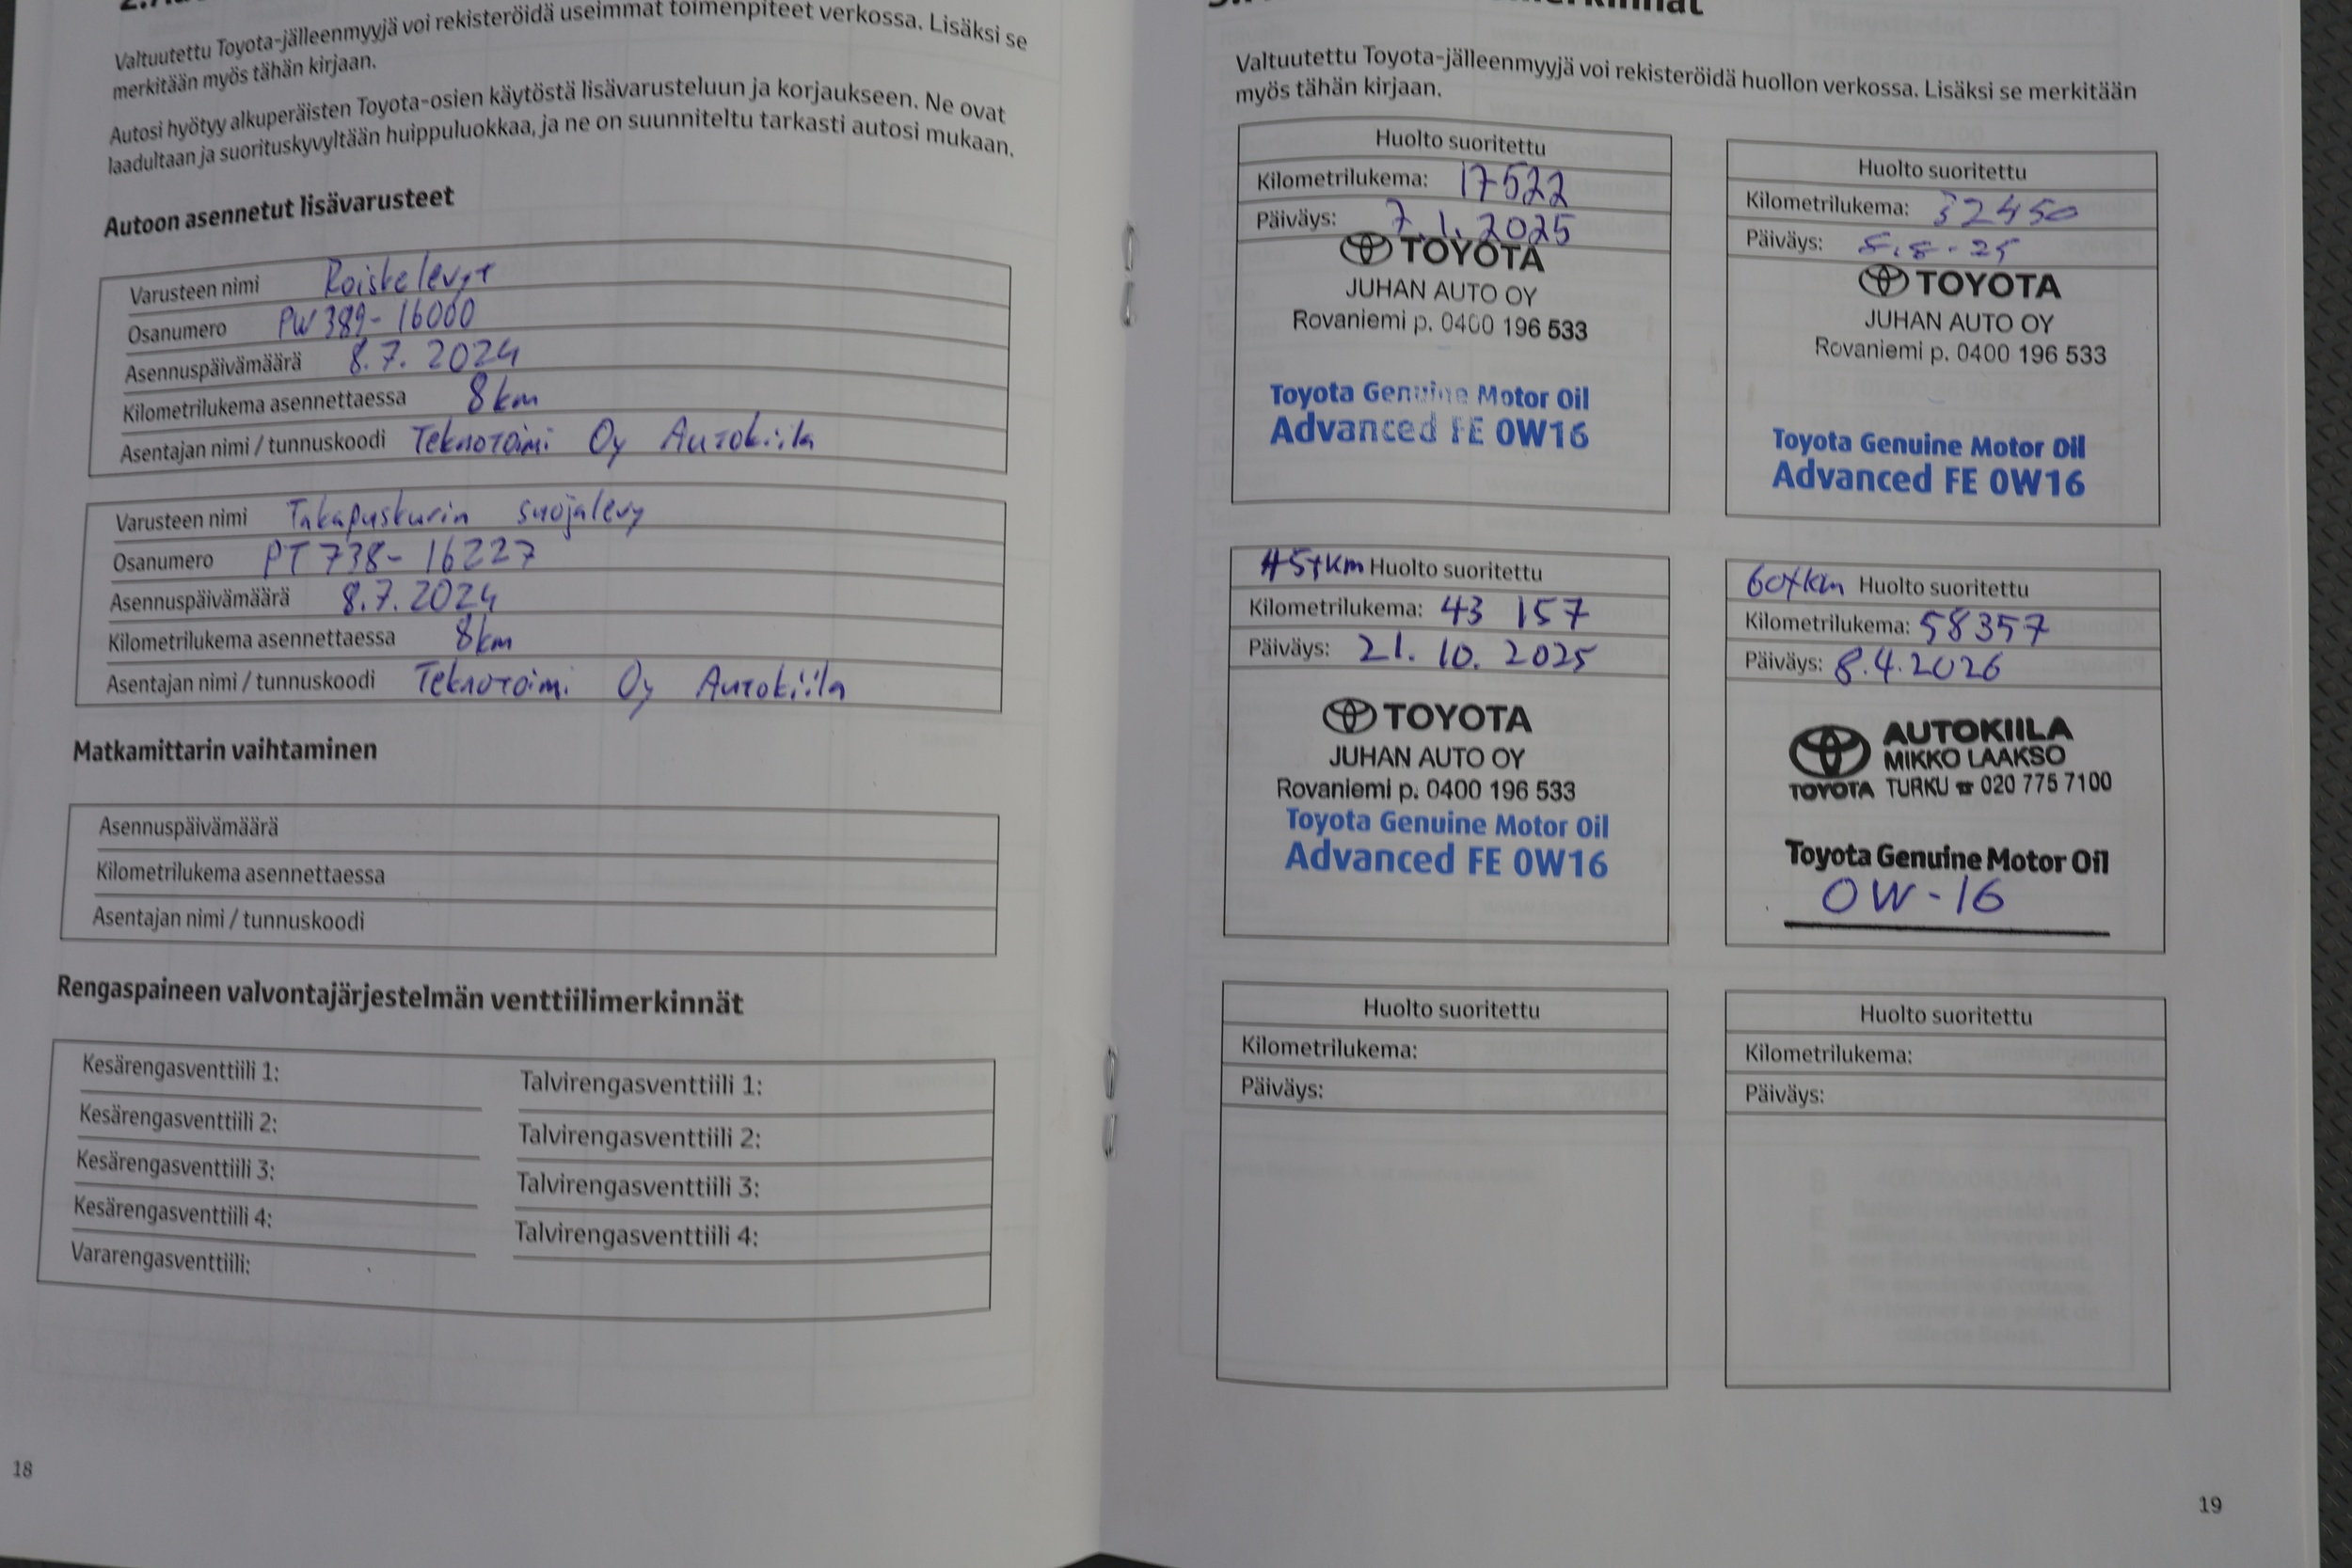 Valtuutettu Toyota-jälleenmyyjä voi rekisteröidä useimmat toimenpiteet verkossa. Lisäksi se
merkitään myös tähän kirjaan.
Autosi hyötyy alkuperäisten Toyota-osien käytöstä lisävarusteluun ja korjaukseen. Ne ovat
laadultaan ja suorituskyvyltään huippuluokkaa, ja ne on suunniteltu tarkasti autosi mukaan.
Autoon asennetut lisävarusteet
Varusteen nimi Roiskelevyt
Osanumero PW389-16000
Asennuspäivämäärä 8.7.2024
Kilometrilukema asennettaessa 8km
Asentajan nimi / tunnuskoodi Teknotoimi Oy Autokiila
Varusteen nimi Takapuskurin suojalevy
Osanumero PT738-16227
Asennuspäivämäärä 8.7.2024
Kilometrilukema asennettaessa 8km
Asentajan nimi / tunnuskoodi Teknotoimi Oy Autokiila
Matkamittarin vaihtaminen
Asennuspäivämäärä
Kilometrilukema asennettaessa
Asentajan nimi / tunnuskoodi
Rengaspaineen valvontajärjestelmän venttiilimerkinnät
Kesärengasventtiili 1:
Kesärengasventtiili 2:
Kesärengasventtiili 3:
Kesärengasventtiili 4:
Vararengasventtiili:
Talvirengasventtiili 1:
Talvirengasventtiili 2:
Talvirengasventtiili 3:
Talvirengasventtiili 4:
18
Valtuutettu Toyota-jälleenmyyjä voi rekisteröidä huollon verkossa. Lisäksi se merkitään
myös tähän kirjaan.
Huolto suoritettu
Kilometrilukema: 17522
Päiväys: 7.1.2025
TOYOTA
JUHAN AUTO OY
Rovaniemi p. 0400 196 533
Toyota Genuine Motor Oil
Advanced FE 0W16
Huolto suoritettu
Kilometrilukema: 32450
Päiväys: 5.8-25
TOYOTA
JUHAN AUTO OY
Rovaniemi p. 0400 196 533
Toyota Genuine Motor Oil
Advanced FE 0W16
45tkm Huolto suoritettu
Kilometrilukema: 43 157
Päiväys: 21. 10. 2025
TOYOTA
JUHAN AUTO OY
Rovaniemi p. 0400 196 533
Toyota Genuine Motor Oil
Advanced FE 0W16
60tkm Huolto suoritettu
Kilometrilukema: 58357
Päiväys: 8.4.2026
AUTOKIILA
MIKKO LAAKSO
TOYOTA TURKU ☎ 020 775 7100
Toyota Genuine Motor Oil
0W-16
Huolto suoritettu
Kilometrilukema:
Päiväys:
Huolto suoritettu
Kilometrilukema:
Päiväys:
19